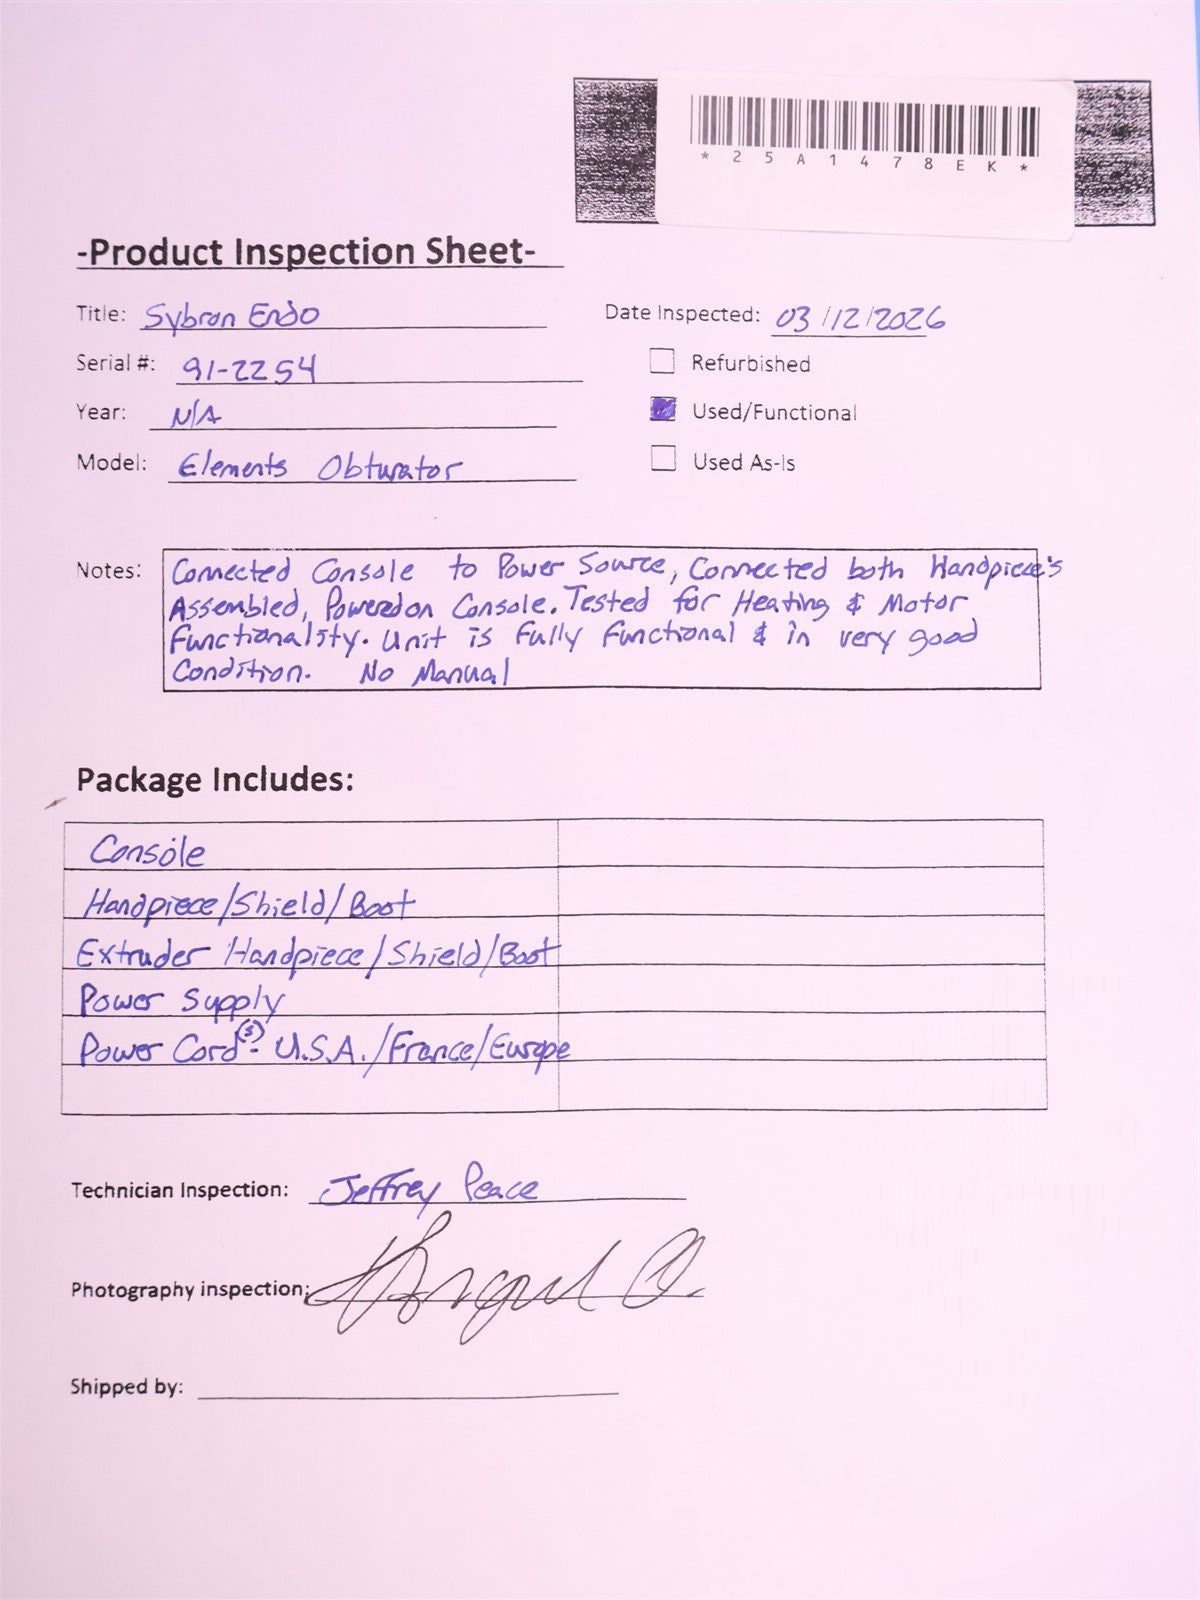 *25A1478EK*
-Product Inspection Sheet-
Title: Sybron Endo
Date Inspected: 03/12/2026
Serial #: 91-2254
Refurbished
Year: N/A
Used/Functional
Model: Elements Obturator
Used As-Is
Notes: Connected Console to Power Source, Connected both Handpiece's
Assembled, Powered on Console. Tested for Heating & Motor
Functionality. Unit is Fully Functional & in very good
Condition. No Manual
Package Includes:
Console
Handpiece/Shield/Boot
Extruder Handpiece/Shield/Boot
Power Supply
Power Cord(s)- U.S.A./France/Europe
Technician Inspection: Jeffrey Peace
Photography inspection:
Shipped by: